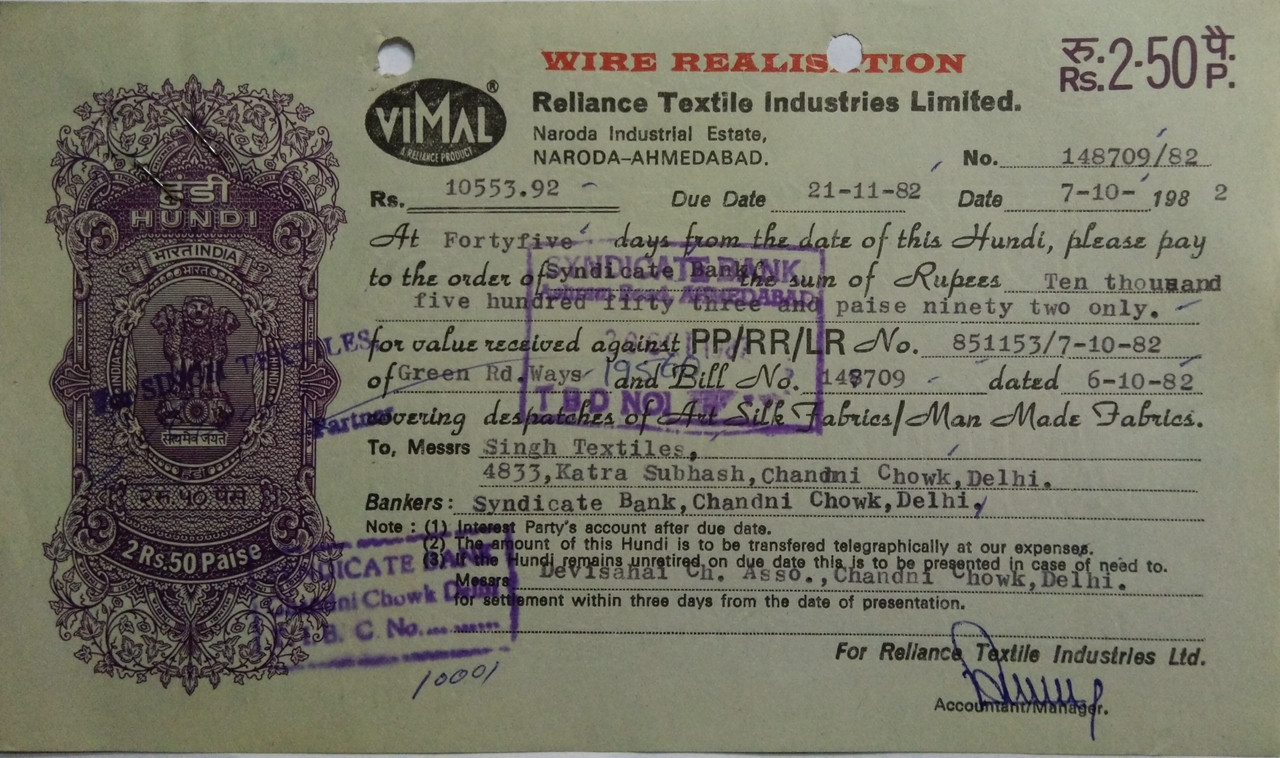 WIRE REALISATION
रु. 2·50 पै.
Rs. P.
VIMAL ®
A RELIANCE PRODUCT
Reliance Textile Industries Limited.
Naroda Industrial Estate,
NARODA-AHMEDABAD.
No. 148709/82
Rs. 10553.92 Due Date 21-11-82 Date 7-10- 198 2
At Fortyfive days from the date of this Hundi, please pay
to the order of Syndicate Bank, the sum of Rupees Ten thousand
five hundred fifty three and paise ninety two only.
for value received against PP/RR/LR No. 851153/7-10-82
of Green Rd. Ways and Bill No. 148709 dated 6-10-82
covering despatches of Art Silk Fabrics/Man Made Fabrics.
To, Messrs Singh Textiles,
4833, Katra Subhash, Chandni Chowk, Delhi.
Bankers: Syndicate Bank, Chandni Chowk, Delhi,
Note : (1) Interest Party's account after due date.
(2) The amount of this Hundi is to be transfered telegraphically at our expenses.
(3) If the Hundi remains unretired on due date this is to be presented in case of need to.
Messrs Devisahai Ch. Asso., Chandni Chowk, Delhi.
for settlement within three days from the date of presentation.
For Reliance Textile Industries Ltd.
Accountant/Manager.
हुंडी
HUNDI
भारत INDIA
भारत
INDIA
सत्यमेव जयते
हुंडी
२ रु. ५० पैसे
2 Rs. 50 Paise
SYNDICATE BANK
AHMEDABAD
I.B.D NO
For TEXTILES
Partner
SYNDICATE BANK
Chandni Chowk Delhi
B. C. No.
10001